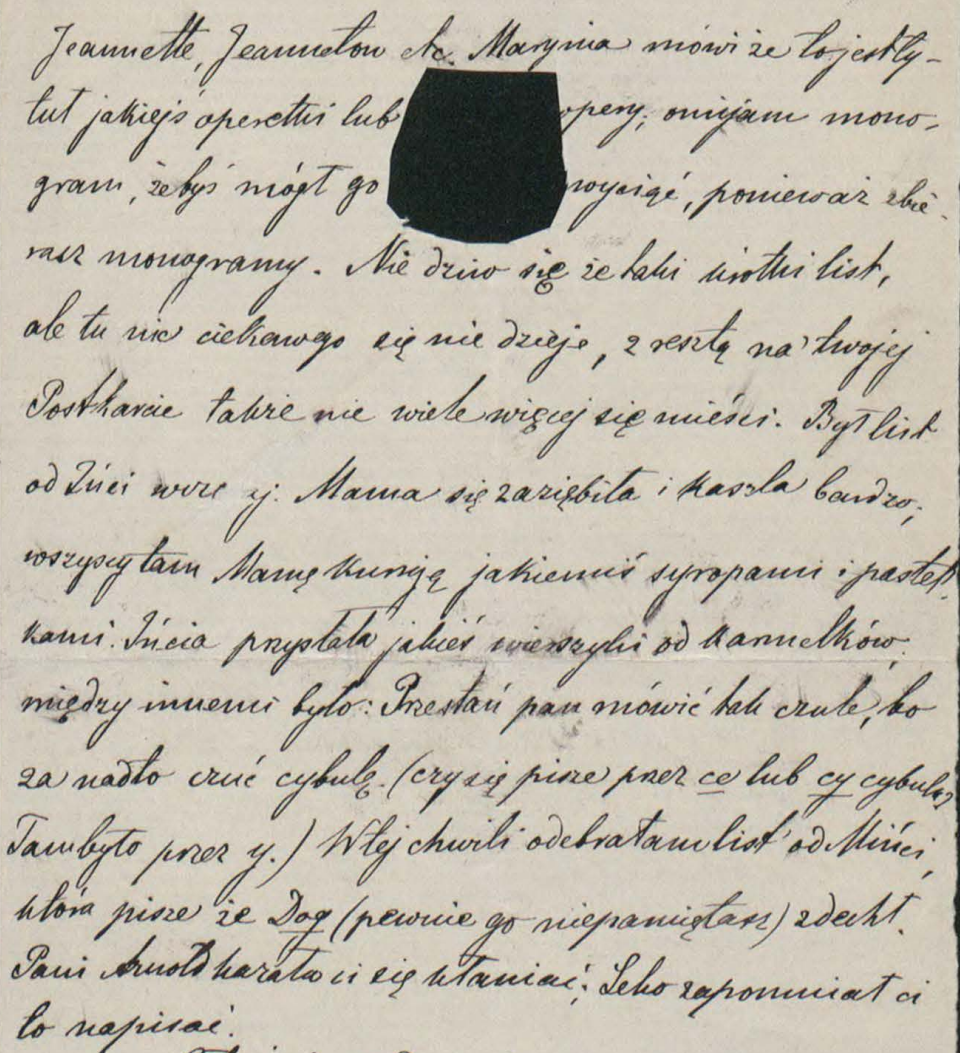 Jeannette, Jeanneton etc. Marynia mówi że to jest ty-
tuł jakiejś operetki lub opery; omijam mono-
gram, żebyś mógł go wyciąć, ponieważ zbie-
rasz monogramy. Nie dziw się że taki krótki list,
ale tu nic ciekawego się nie dzieje, z resztą na twojej
Postkarcie także nie wiele więcej się mieści. Był list
od Żuci Mama się zaziębiła i kaszla bardzo;
wszyscy tam Mamę kurują jakiemiś syropami i pastyl-
kami. Żucia przysłała jakieś wierszyki od karmelków;
między innemi było: Przestań pan mówić tak czule, bo
za nadto czuć cybulę. (czy się pisze przez ce lub cy cybula?
Tam było przez y.) W tej chwili odebrałam list od Mińci,
która pisze że Dog (pewnie go niepamiętasz) zdechł.
Pani Arnold kazała ci się kłaniać; Leho zapomniał ci
to napisać.